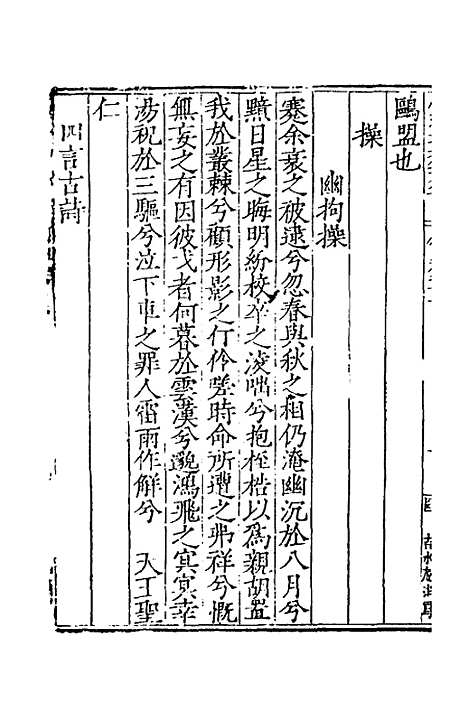 鷗盟也
操
幽拘操
蹇余衰之被逮兮忽春與秋之相仍淹幽沉於八月兮
黯日星之晦明紛校卒之淩咄兮抱桎梏以爲親胡寘
我於叢棘兮顧形影之行伶嗟時命所遭之弗祥兮慨
無妄之有因彼弋者何暮於雲漢兮邈鴻飛之冥冥幸
湯祝於三驅兮泣下車之罪人雷雨作解兮 天王聖
仁
四言古詩